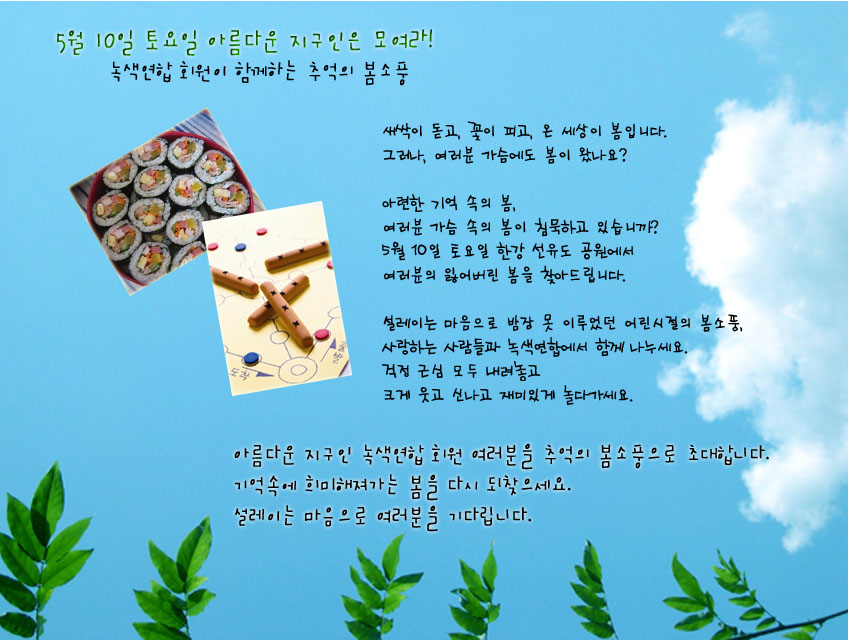 5월 10일 토요일 아름다운 지구인은 모여라!
녹색연합 회원이 함께하는 추억의 봄소풍
새싹이 돋고, 꽃이 피고, 온 세상이 봄입니다.
그러나, 여러분 가슴에도 봄이 왔나요?
아련한 기억 속의 봄,
여러분 가슴 속의 봄이 침묵하고 있습니까?
5월 10일 토요일 한강 선유도 공원에서
여러분의 잃어버린 봄을 찾아드립니다.
설레이는 마음으로 밤잠 못 이루었던 어린시절의 봄소풍,
사랑하는 사람들과 녹색연합에서 함께 나누세요.
걱정 근심 모두 내려놓고
크게 웃고 신나고 재미있게 놀다가세요.
아름다운 지구인 녹색연합 회원 여러분을 추억의 봄소풍으로 초대합니다.
기억속에 희미해져가는 봄을 다시 되찾으세요.
설레이는 마음으로 여러분을 기다립니다.